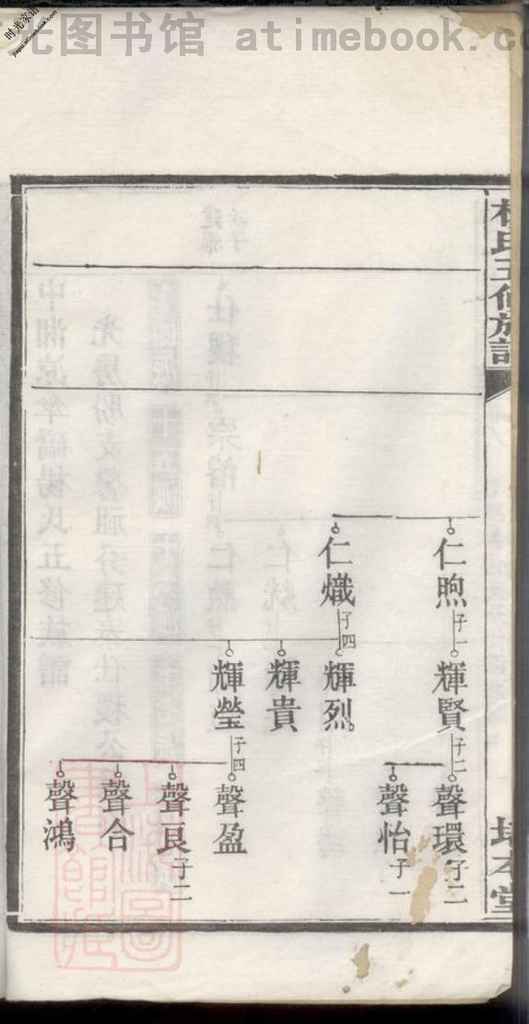 光图书馆 @ atimebook.com
氏五修族譜
仁煦
子一
輝賢
子二
聲環
子二
聲怡
子一
仁熾
子四
輝烈
輝貴
輝瑩
子四
聲盈
聲良
子二
聲合
聲鴻
本堂